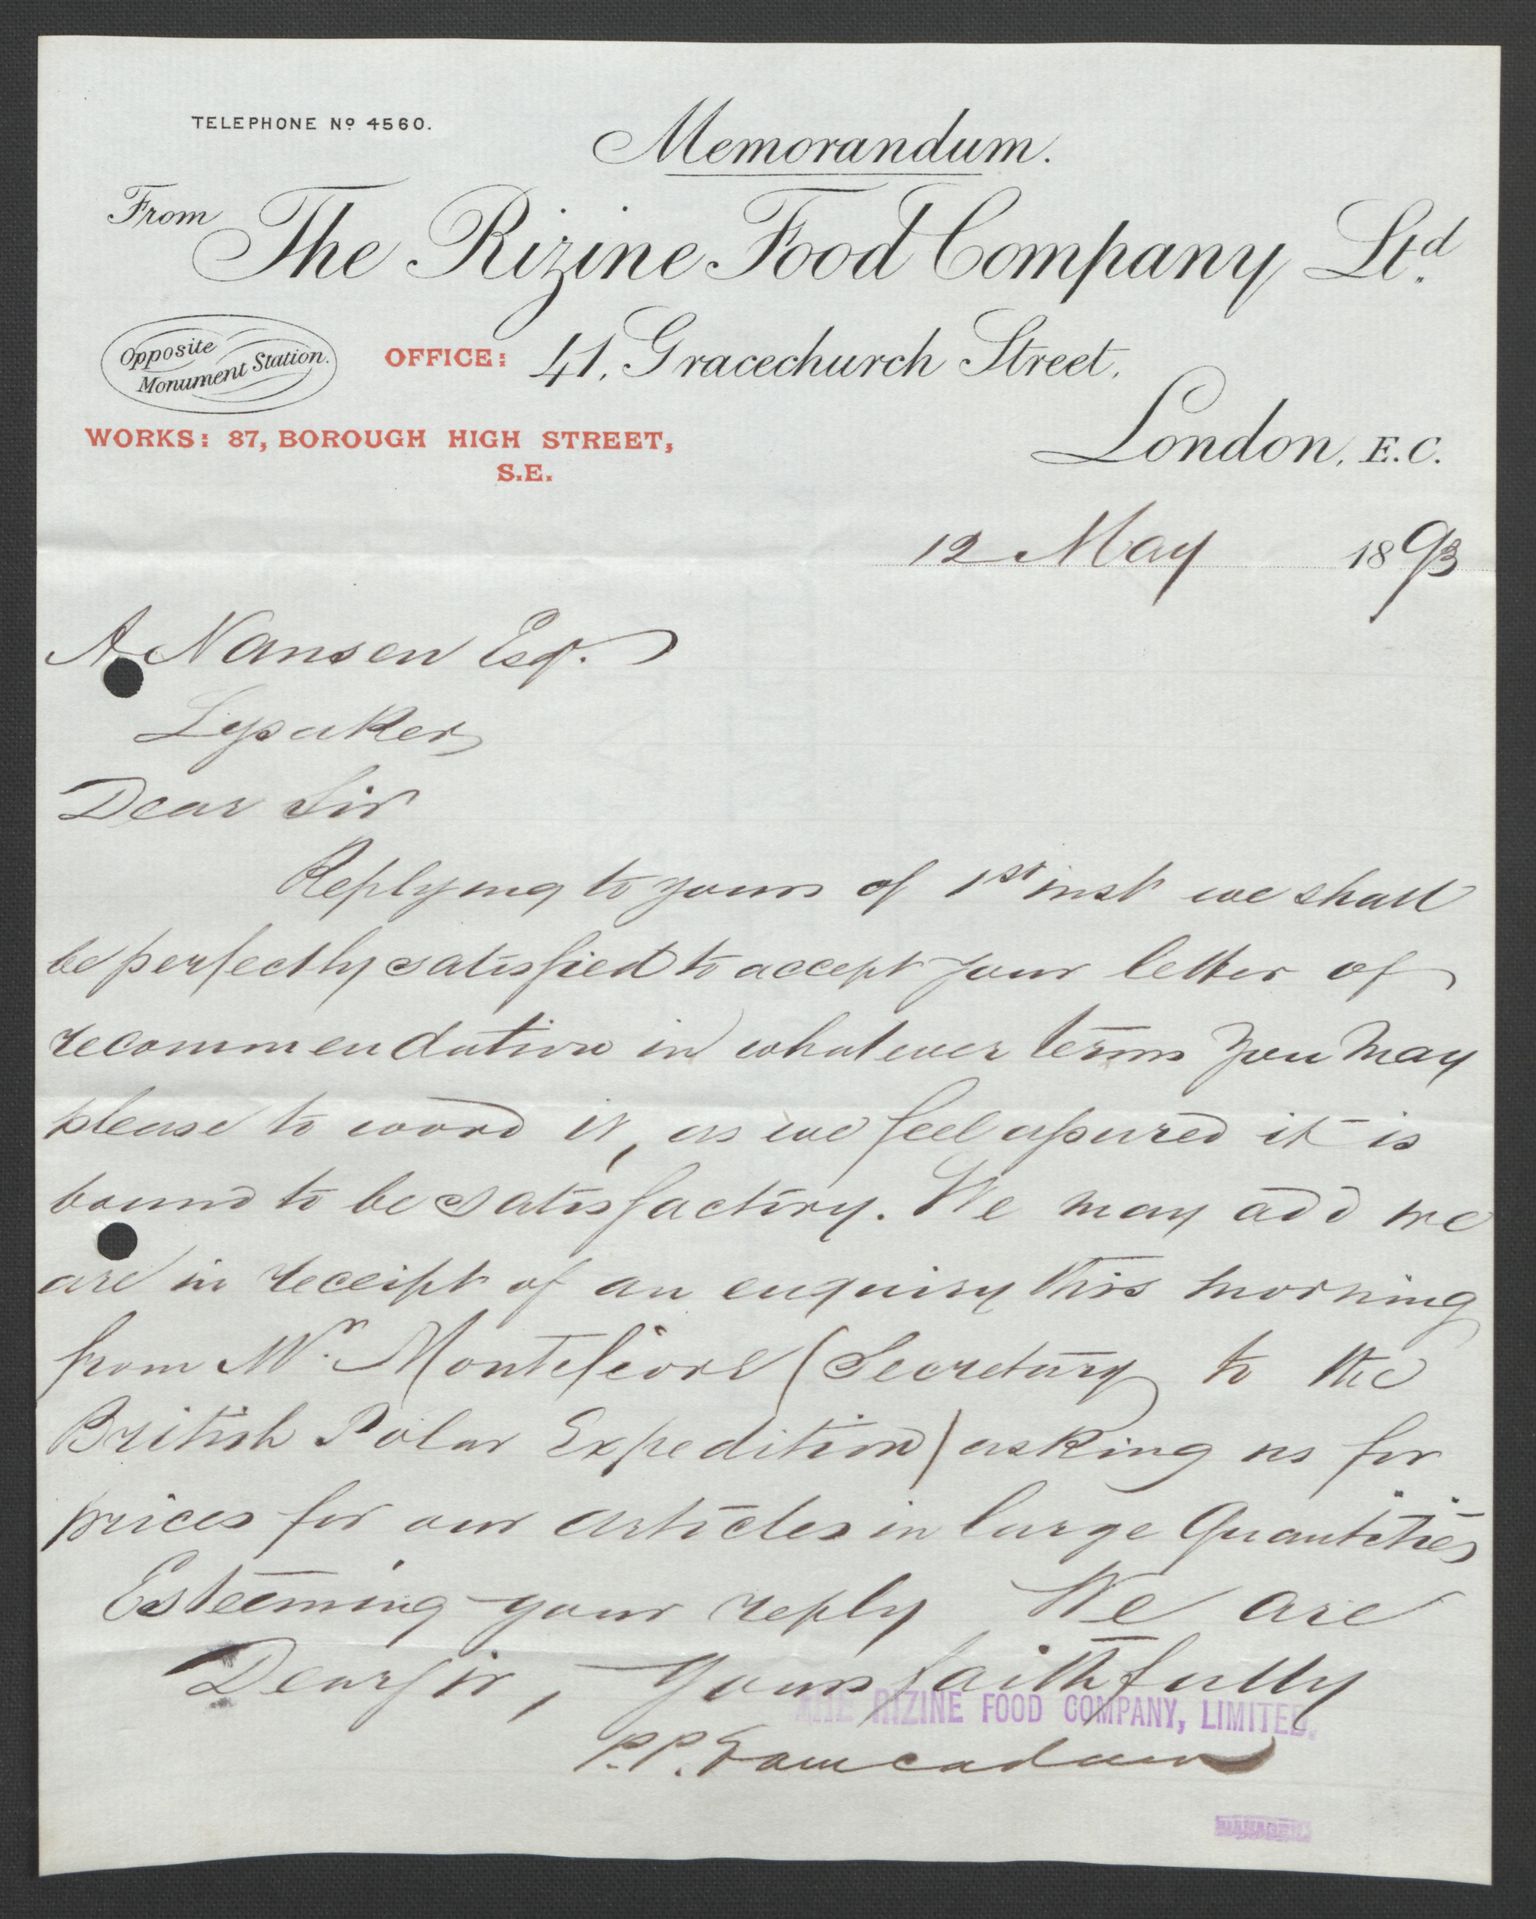 TELEPHONE Nº 4560.
Memorandum.
From The Rizine Food Company Ltd.
Opposite
Monument Station.
OFFICE: 41, Gracechurch Street,
London, E.C.
WORKS: 87, BOROUGH HIGH STREET,
S.E.
12 May 1893
A Nansen Esq.
Lysaker
Dear Sir
Replying to yours of 1st inst we shall
be perfectly satisfied to accept your letter of
recommendation in whatever terms you may
please to word it, as we feel assured it is
bound to be satisfactory. We may add we
are in receipt of an enquiry this morning
from Mr. Montefiore (Secretary to the
British Polar Expedition) asking us for
prices for our articles in large Quantities
Esteeming your reply We are
Dear Sir, Yours faithfully
THE RIZINE FOOD COMPANY, LIMITED.
P.P.
MANAGER